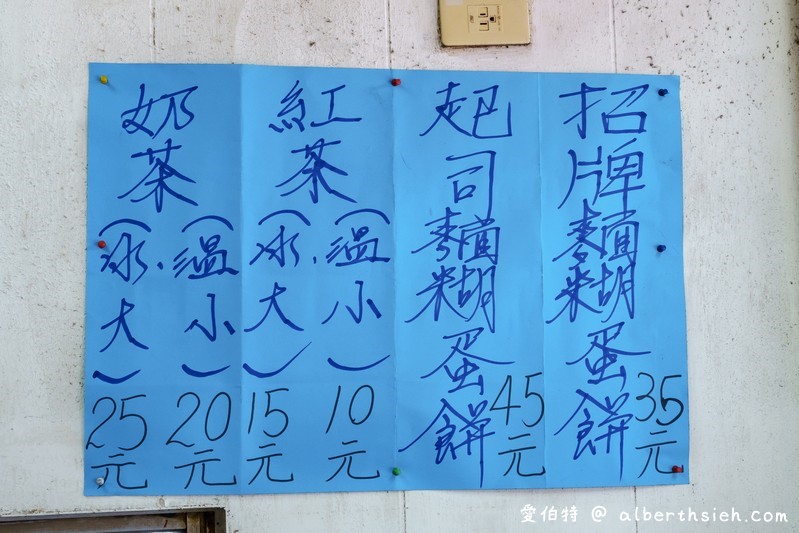 招牌麵糊蛋餅
35元
起司麵糊蛋餅
45元
紅茶
(溫小)
10元
(冰.大)
15元
奶茶
(溫小)
20元
(冰.大)
25元
愛伯特 @ alberthsieh.com